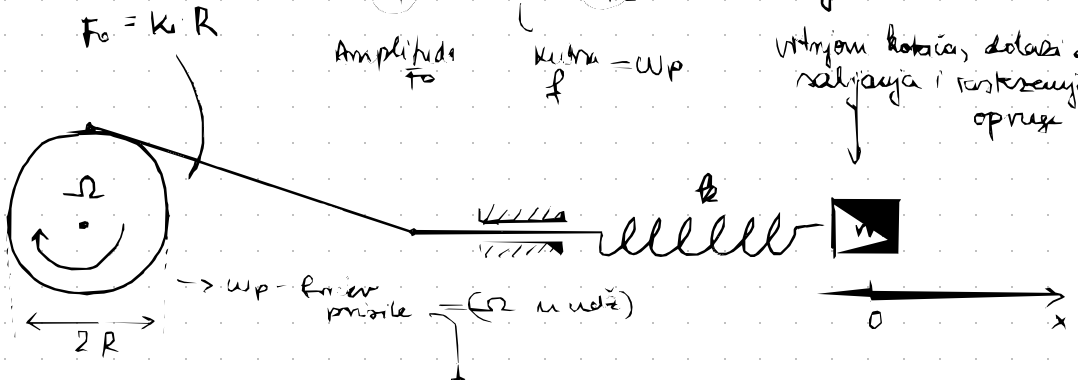 F₀ = k · R
Amplituda
F₀
kutna = ωp
f
vrtnjom kotača, dolazi
sabijanja i rastezanja
opruge
Ω
k
m
→ ωp - frekv
prisile = (Ω u udž)
2 R
0
x